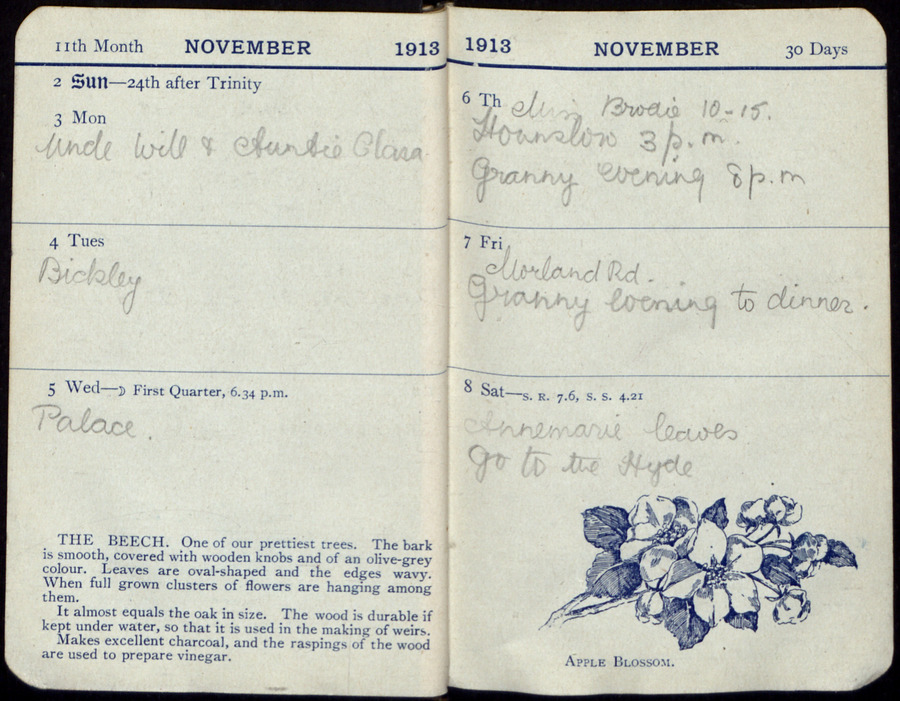 11th Month NOVEMBER 1913
2 Sun—24th after Trinity
3 Mon
Uncle Will & Auntie Clara
4 Tues
Bickley
5 Wed—☽ First Quarter, 6.34 p.m.
Palace.
THE BEECH. One of our prettiest trees. The bark
is smooth, covered with wooden knobs and of an olive-grey
colour. Leaves are oval-shaped and the edges wavy.
When full grown clusters of flowers are hanging among
them.
It almost equals the oak in size. The wood is durable if
kept under water, so that it is used in the making of weirs.
Makes excellent charcoal, and the raspings of the wood
are used to prepare vinegar.
1913 NOVEMBER 30 Days
6 Th Miss Brodie 10-15.
Hounslow 3 p.m.
Granny evening 8 p.m
7 Fri
Morland Rd.
Granny evening to dinner.
8 Sat—S. R. 7.6, S. S. 4.21
Annemarie leaves
Go to the Hyde
APPLE BLOSSOM.